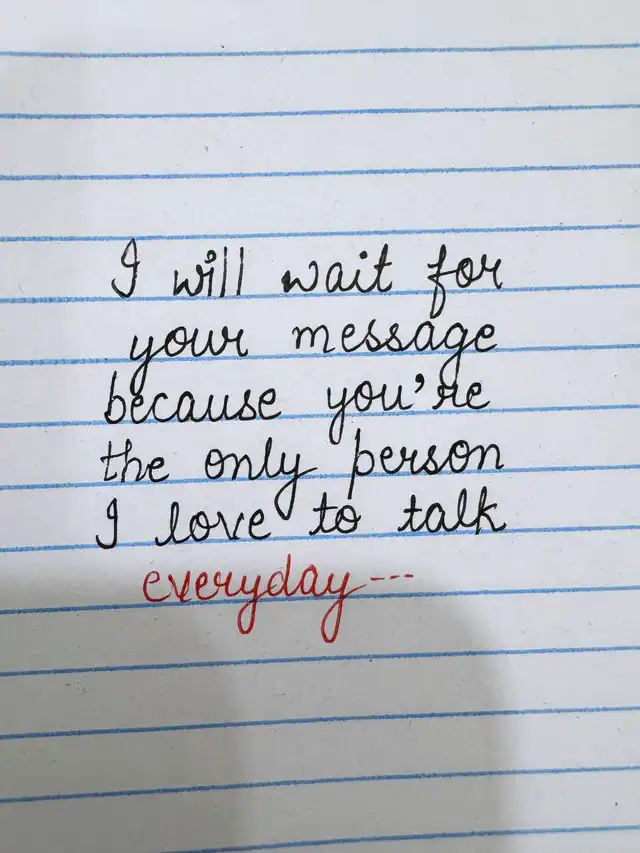 I will wait for
your message
because you're
the only person
I love to talk
everyday---